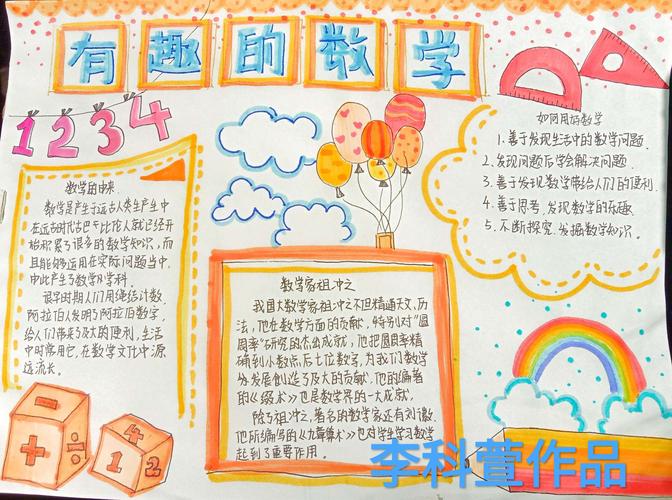 有趣的数学
1234
数学的由来
数学是产生于远古人类生产生中
在远古时代古巴干比伦人就已经开
始积累了很多的数学知识，而
且能够运用在实际问题当中，
由此产生了数学的学科。
很早时期人们用绳结计数，
阿拉伯人发明了阿拉伯数字，
给人们带来了及大的便利，生活
中时常用它，在数学文化中源
远流长。
+ − ÷
4
1 2
数学家祖冲之
我国大数学家祖冲之不但精通天文、历
法，他在数学方面的贡献，特别对“圆
周率”研究的杰出成就，他把圆周率精
确到小数点后七位数字，为我们数学
的发展创造了及大的贡献。他的编著
的《缀术》也是数学界的一大成就。
除了祖冲之，著名的数学家还有刘徽，
他所编写的《九算算术》也对学生学习数学
起到了重要作用。
如何用好数学
1. 善于发现生活中的数学问题.
2. 发现问题后学会解决问题.
3. 善于发现数学带给人们的便利.
4. 善于思考，发现数学的乐趣.
5. 不断探究，发掘数学知识.
李科萱作品